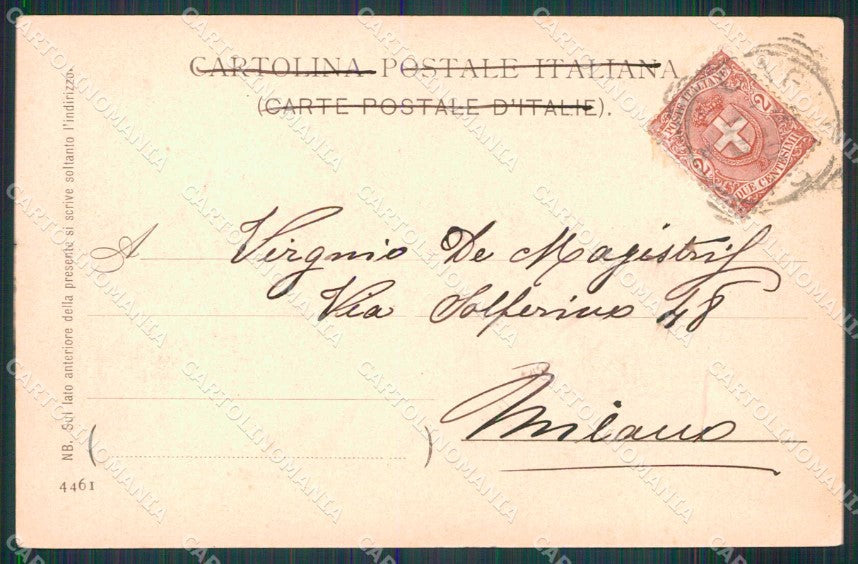 CARTOLINA POSTALE ITALIANA
(CARTE POSTALE D'ITALIE).
POSTE ITALIANE
2
DUE CENTESIMI
2
A Virginio De Magistris
Via Solferino 48
Milano
( )
4461
NB. Sul lato anteriore della presente si scrive soltanto l'indirizzo.
CARTOLINOMANIA